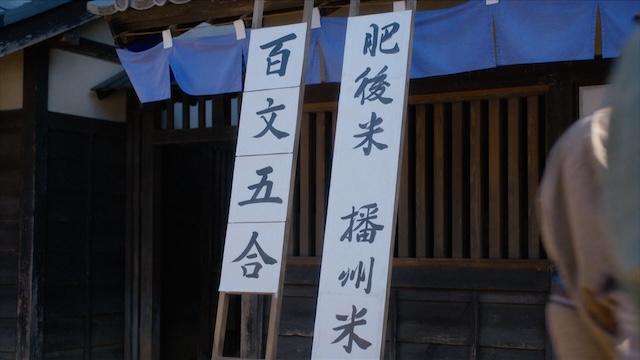 肥後米　播州米
百文五合